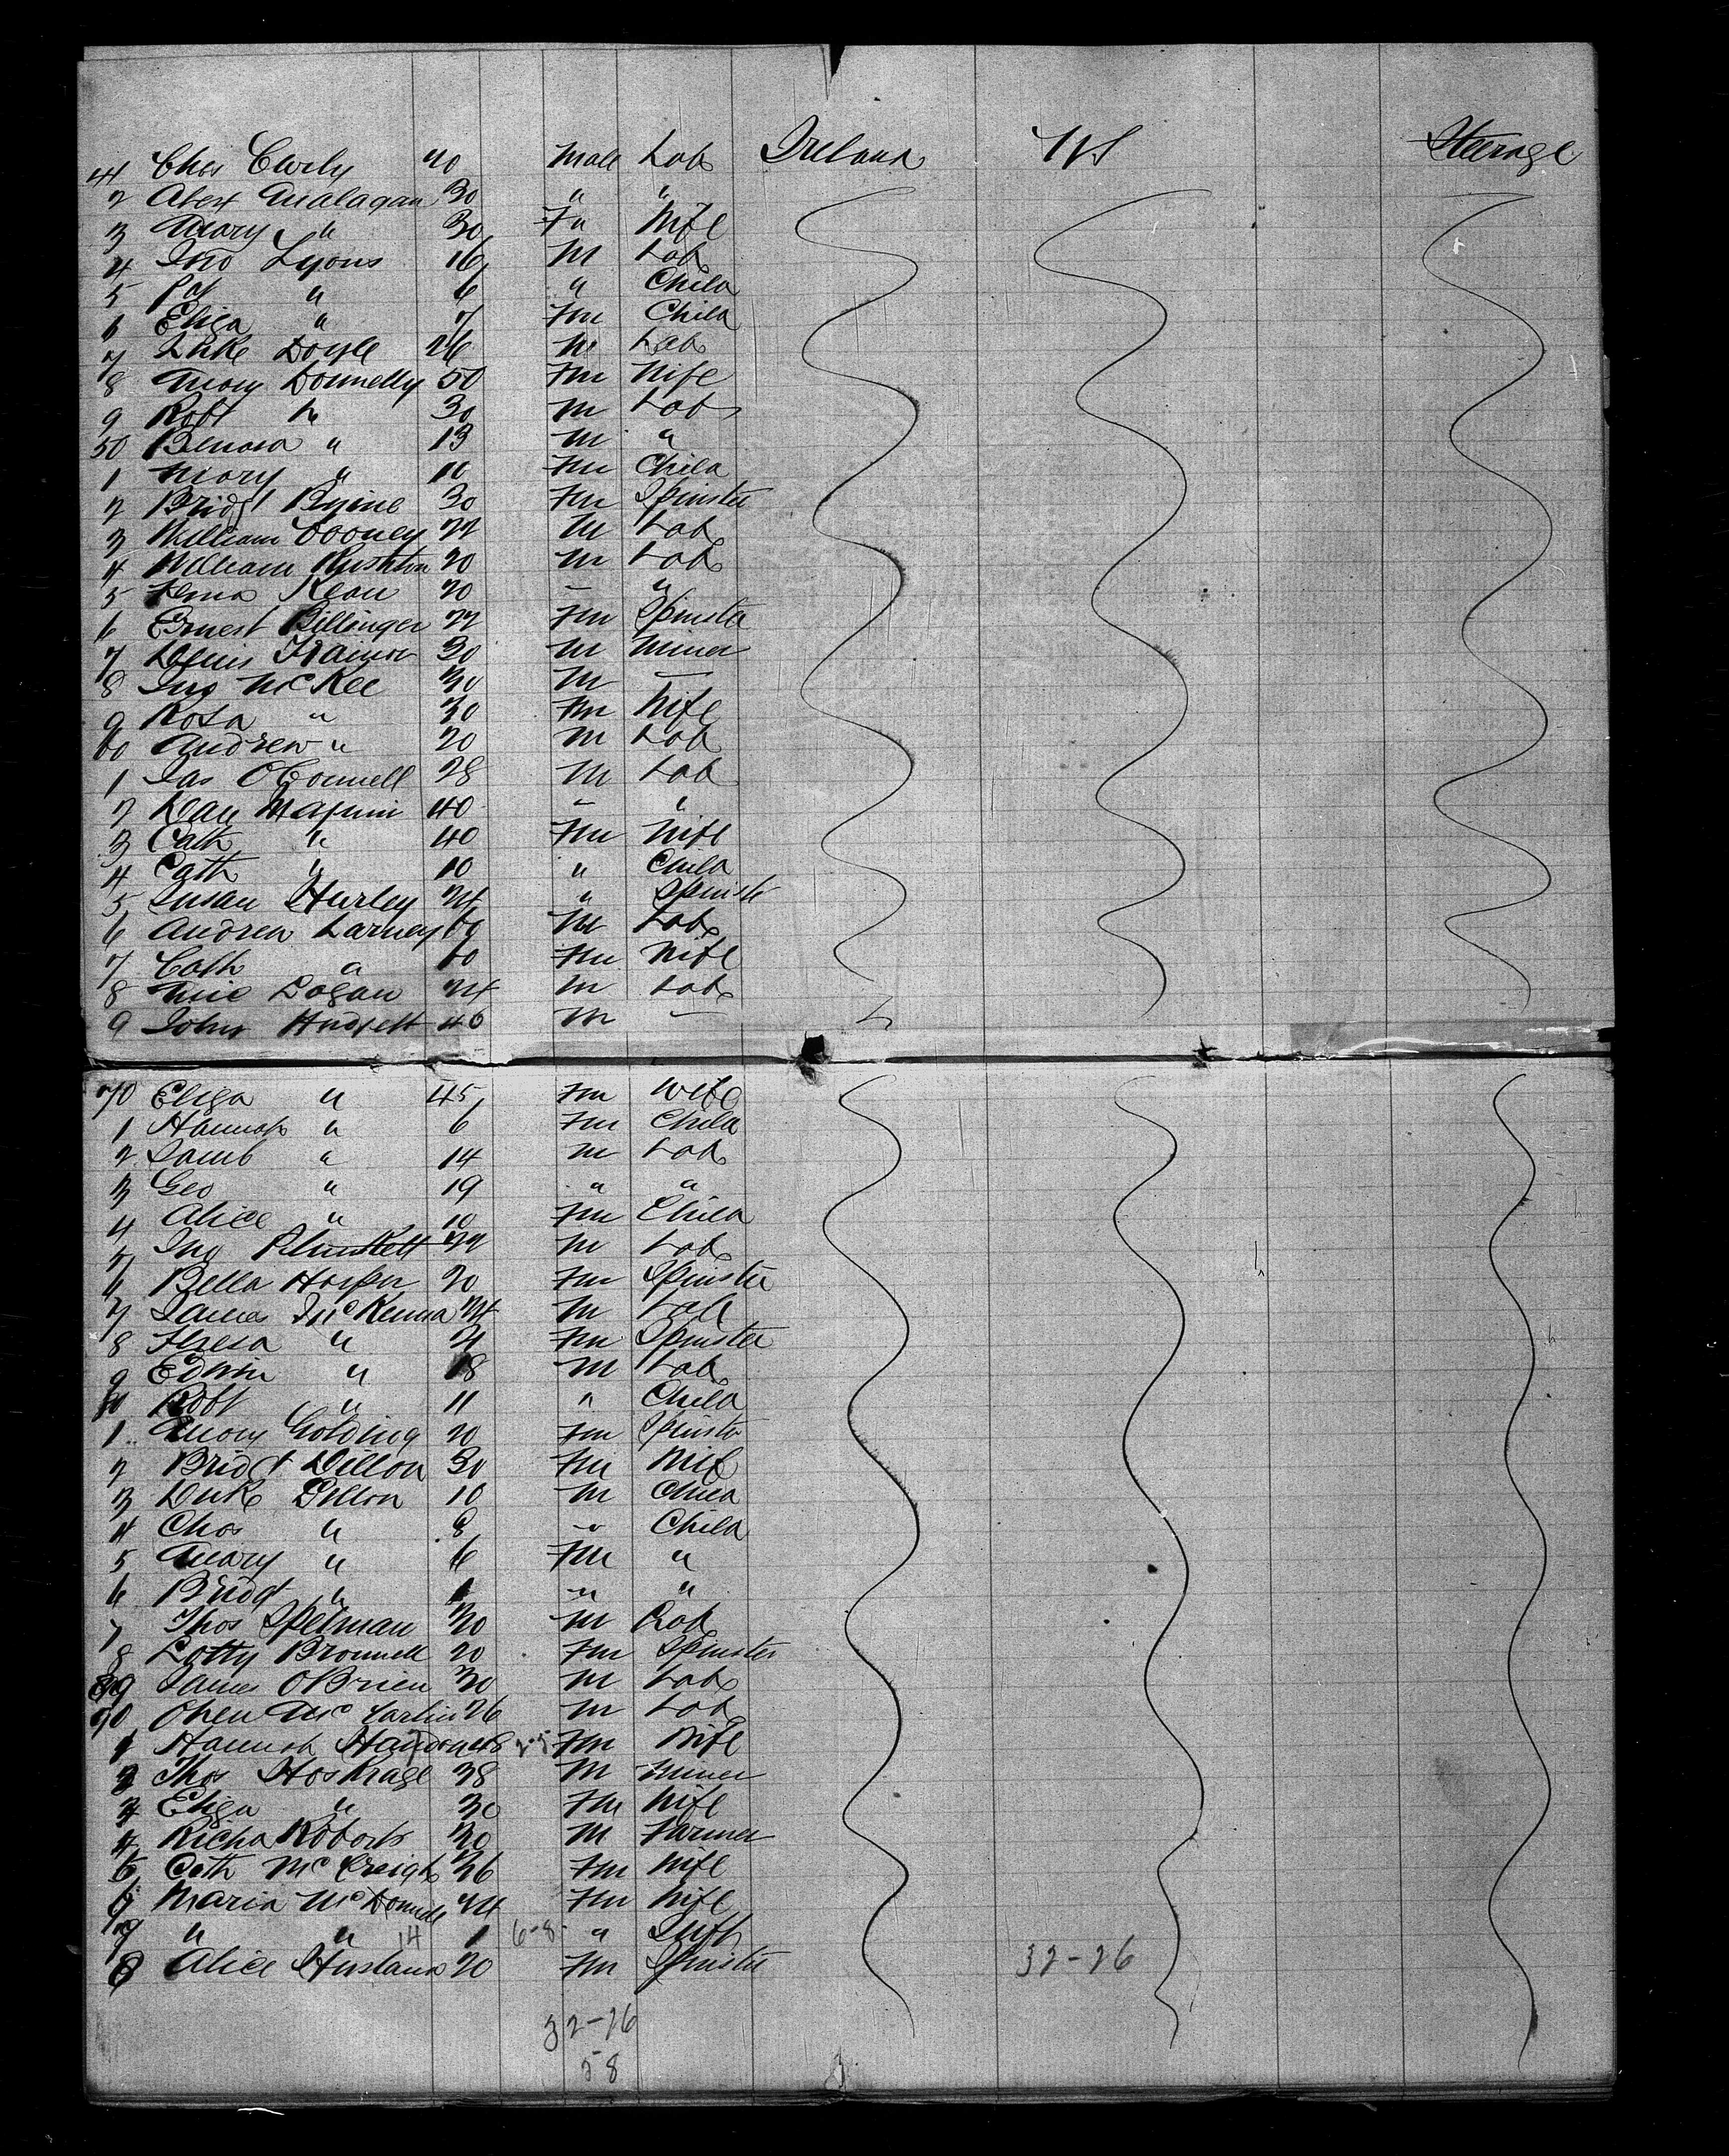 41 Chas Curly 40 Male Lab Ireland US Steerage
2 Abex Malagan 30 " "
3 Mary " 30 Fm Wife
4 Jno Lyons 16 M Lab
5 Pat " 6 " Child
6 Eliza " 7 Fm Child
7 Luke Doyle 26 M Lab
8 Mary Donnelly 50 Fm Wife
9 Robt " 30 M Lab
50 Bernard " 13 M "
1 Mary " 10 Fm Child
2 Bridgt Byrine 30 Fm Spinster
3 William Cooney 22 M Lab
4 William Rushton 20 M Lab
5 Kean 20 – "
6 Ernest Billinger 22 Fm Spinster
7 Denis Trainor 30 M Miner
8 Jno McKee 30 M –
9 Rosa " 30 Fm Wife
60 Andrew " 20 M Lab
1 Jas O'Connell 28 M Lab
2 Dan Maguin 40 " "
3 Cath " 40 Fm Wife
4 Cath " 10 " Child
5 Susan Hurley 24 " Spinster
6 Andrew Larney 60 M Lab
7 Cath " 60 Fm Wife
8 Mic Logan 24 M Lab
9 John Hudgett 46 M –
70 Eliza " 45 Fm Wife
1 Hannah " 6 Fm Child
2 " 14 M Lab
3 Geo " 19 " "
4 Alice " 10 Fm Child
5 Jno Plunkett 22 M Lab
6 Bella Harper 20 Fm Spinster
7 James McKenna 24 M Lab
8 Teresa " 21 Fm Spinster
9 Edwin " 18 M Lab
80 Robt " 11 " Child
1 Mary Golding 20 Fm Spinster
2 Bridgt Dillon 30 Fm Wife
3 Luke Dillon 10 M Child
4 Chas " 8 " Child
5 Mary " 6 Fm "
6 Bridgt " 1 " "
7 Thos Spelman 30 M Lab
8 Lotty Brownell 20 Fm Spinster
89 James O'Brien 30 M Lab
90 Owen McCarlin 26 M Lab
1 Hannah 48 Fm Wife
2 Thos Hoskrage 38 M Miner
3 Eliza " 30 Fm Wife
4 Richd Roberts 30 M Farmer
5 Cath McCreigh 36 Fm Wife
6 Maria McDonnell 24 Fm Wife
7 " " 14 1 6-8- " Inft
8 Alice Husband 20 Fm Spinster
32-26
32-26
58